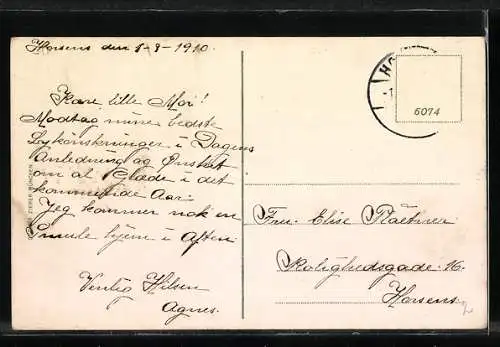 Horsens den 1-8-1910.
Kære lille Mor!
Modtag mine bedste
Lykønskninger i Dagens
Anledning og Ønsket
om al Glæde i det
kommende Aar.
Jeg kommer nok en
Smule hjem i Aften.
Venlig Hilsen
Agnes.
HO
6074
Fru. Elise
Rolighedsgade 16.
Horsens